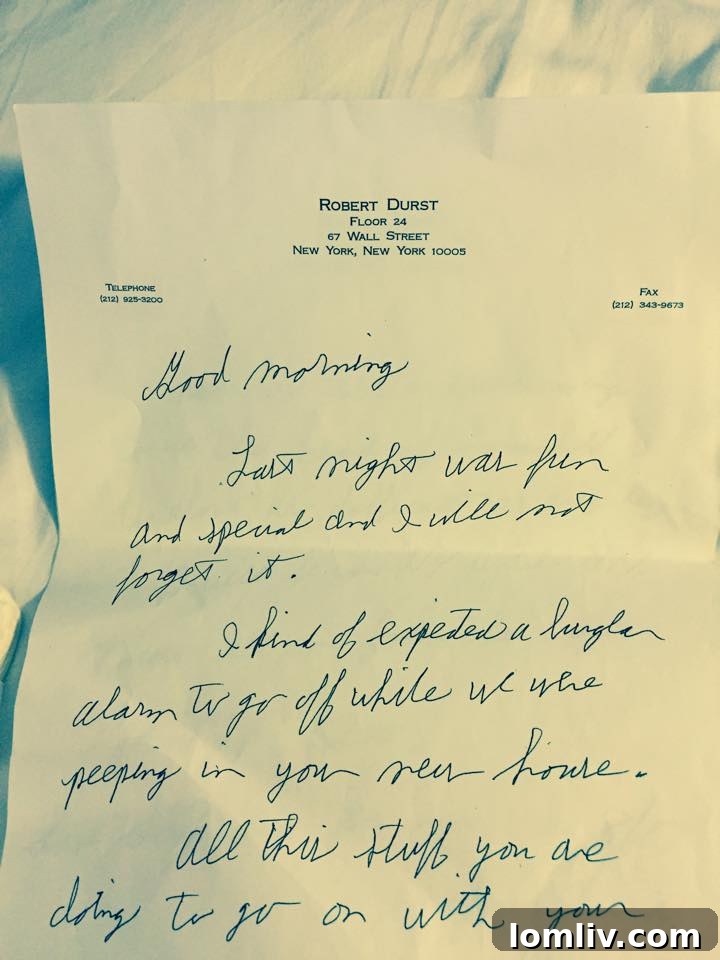 ROBERT DURST
FLOOR 24
67 WALL STREET
NEW YORK, NEW YORK 10005
TELEPHONE
(212) 925-3200
FAX
(212) 343-9673
Good morning
Last night was fun
and special and I will not
forget it.
I kind of expected a burglar
alarm to go off while we were
peeping in your new house.
All this stuff you are
doing to go on with your
lomliv.com